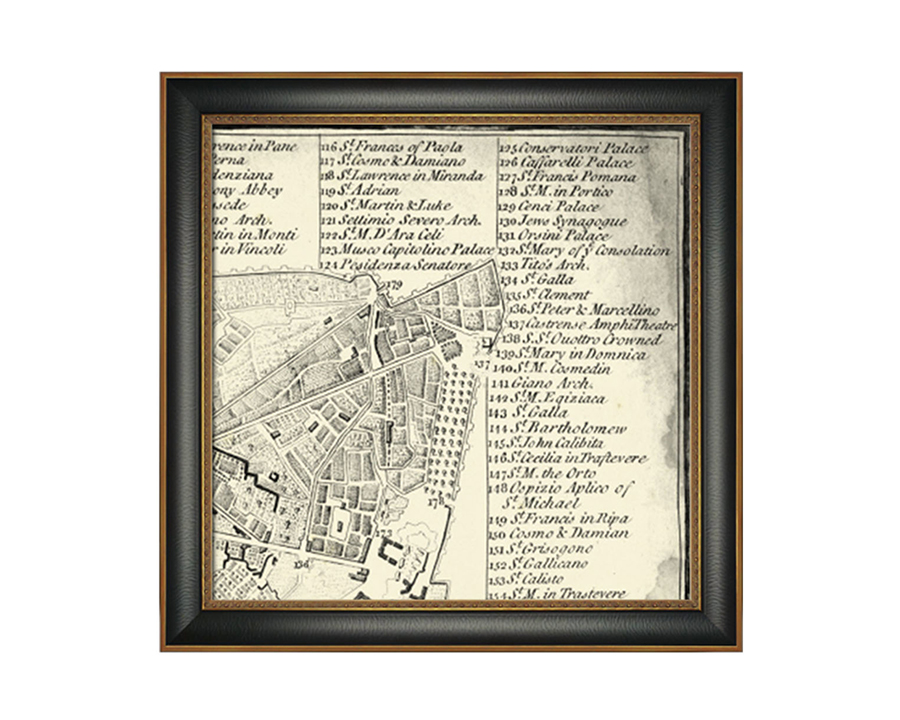 rence in Pane
erna
lenziana
ony Abbey
sede
no Arch.
tin in Monti
r in Vincoli
116 St. Frances of Paola
117 St. Cosmo & Damiano
118 St. Lawrence in Miranda
119 St. Adrian
120 St. Martin & Luke
121 Settimio Severo Arch.
122 St. M. D'Ara Celi
123 Musco Capitolino Palace
124 Pesidenza Senatore
125 Conservatori Palace
126 Caffarelli Palace
127 St. Francis Pomana
128 St. M. in Portico
129 Cenci Palace
130 Jews Synagogue
131 Orsini Palace
132 St. Mary of ye Consolation
133 Tito's Arch.
134 St. Galla
135 St. Clement
136 St. Peter & Marcellino
137 Castrense AmphiTheatre
138 S. St. Quottro Crowned
139 St. Mary in Domnica
140 St. M. Cosmedin
141 Giano Arch.
142 St. M. Egiziaca
143 St. Galla
144 St. Bartholomew
145 St. John Calibita
146 St. Cecilia in Traſtevere
147 St. M. the Orto
148 Ospizio Aplico of
St. Michael
149 St. Francis in Ripa
150 Cosmo & Damian
151 St. Grisogono
152 St. Gallicano
153 St. Calisto
154 St. M. in Trastevere
179
137
178
173
136